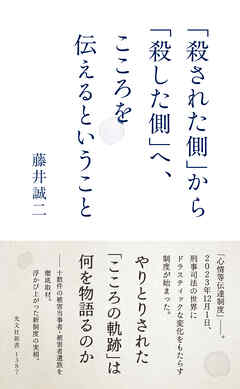 「殺された側」から
「殺した側」へ、
こころを
伝えるということ
藤井誠二
「心情等伝達制度」――。
2023年12月1日、
刑事司法の世界に
ドラスティックな変化をもたらす
制度が始まった。
やりとりされた
「こころの軌跡」は
何を物語るのか
――十数件の被害当事者・被害者遺族を
徹底取材。
浮かび上がった新制度の実相。
光文社新書 1387